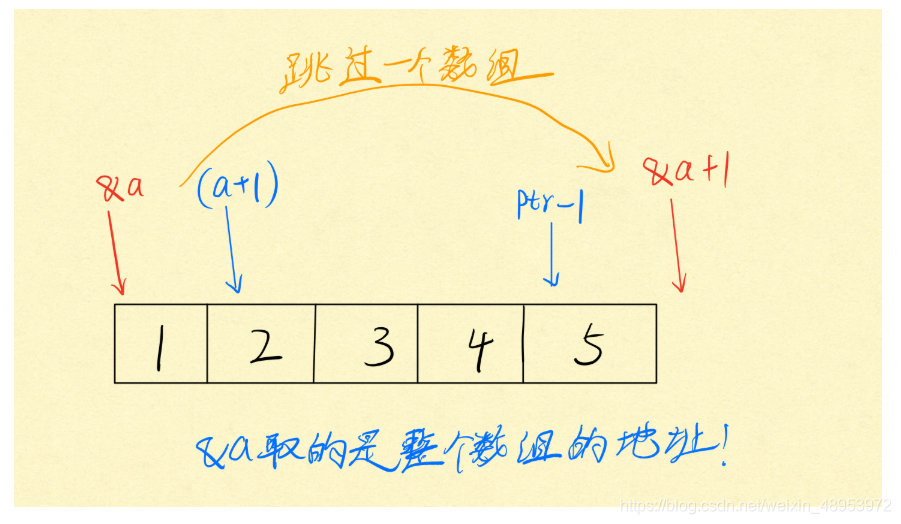 跳过一个数组
&a
(a+1)
ptr-1
&a+1
1 2 3 4 5
&a取的是整个数组的地址!
https://blog.csdn.net/weixin_48953972